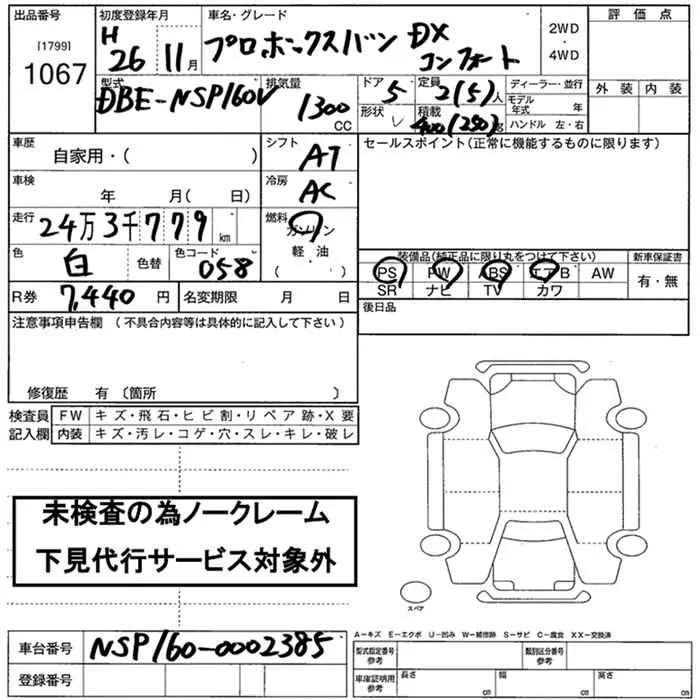 出品番号 初度登録年月 車名・グレード 2WD・4WD 評価点
[1799] 1067 H26 11月 プロボックスバン DX コンフォート
型式 排気量 ドア 定員 ディーラー・並行 外装 内装
DBE-NSP160V 1300CC 5 2(5)人 モデル年式 年
形状 レ 積載 400(250)kg ハンドル 左・右
車歴 シフト セールスポイント(正常に機能するものに限ります)
自家用・( ) AT
車検 冷房
年 月( 日) AC
走行 24万3千779km 燃料 ガソリン・軽油・( )
色 白 色替 色コード 058
装備品(純正品に限り丸をつけて下さい) 新車保証書
PS PW ABS エアB AW 有・無
SR ナビ TV カワ
R券 7,440円 名変期限 月 日 後日品
注意事項申告欄 (不具合内容等は具体的に記入して下さい)
修復歴 有 〔箇所 〕
検査員 FW キズ・飛石・ヒビ割・リペア跡・X要
記入欄 内装 キズ・汚レ・コゲ・穴・スレ・キレ・破レ
未検査の為ノークレーム
下見代行サービス対象外
スペア
A−キズ E−エクボ U−凹み W−補修跡 S−サビ C−腐食 XX−交換済
車台番号 NSP160-0002385 型式指定番号 参考 類別区分番号 参考
登録番号 車庫証明用 参考 長さ cm 幅 cm 高さ cm